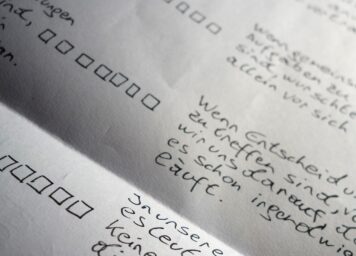 ungen
ind,
an.
Wenn gemeinsam
Aufgaben zu
sind, wünsche
allein vor sich
Wenn Entscheidun
zu treffen sind, ve
wir uns darauf, d
es schon irgendwie
läuft.
In unsere
es
keine
di